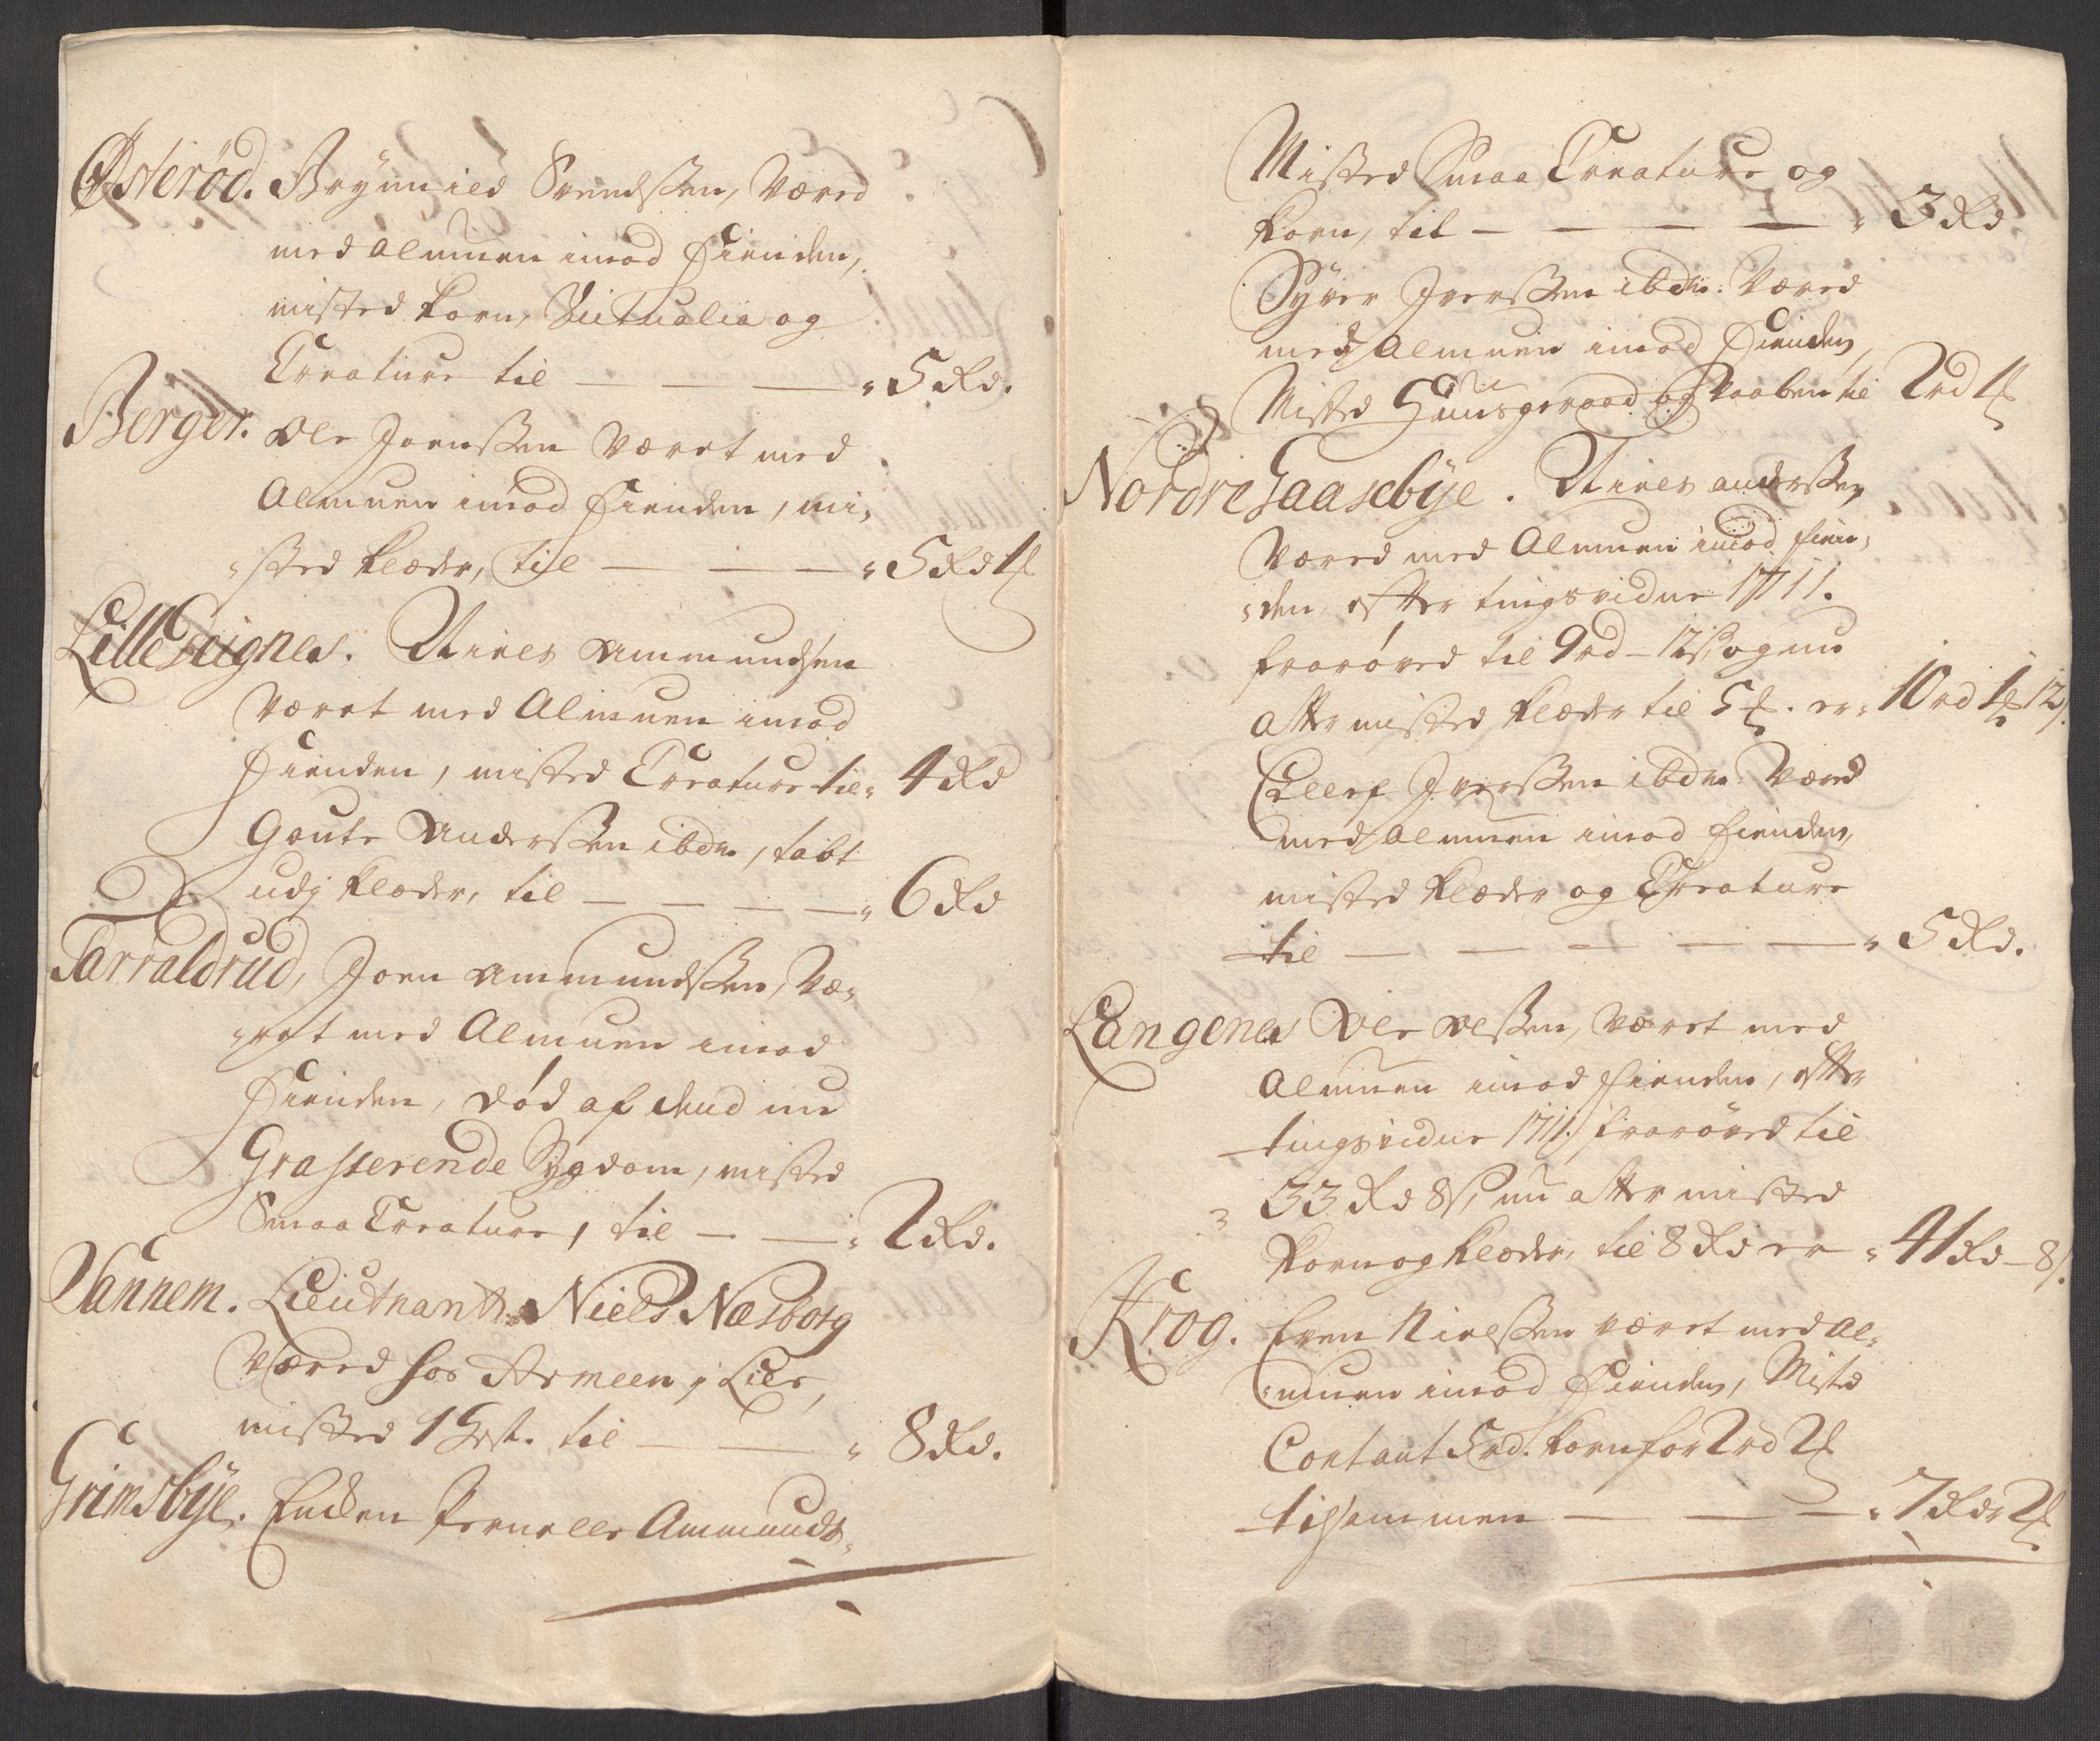 Østerød. Brÿnnild Svendßen, Væred
med Almuen imod Fienden,
misted korn, Victualia og
Creature til — — — 5 Rd.
Berger. Ole Joenßen Været med
Almuen imod Fienden, mi-
sted klæder, til — — — 5 Rd 1
Lille Seignes. Niels Ammundsen
Været med Almuen imod
Fienden, misted Creature til 4 Rd
Goute Anderßen ibdm, tabt
udj klæder, til — — — — 6 Rd
Tarraldrud, Joen Ammundßen, Væ-
ret med Almuen imod
Fienden, død af den nu
Grasserende Sygdom, misted
Smaa Creature, til — — 2 Rd.
Vannem. Lieutnant Niels Næsborg
Væred hos Armeen j Lier,
misted 1 Hest. til — — 8 Rd.
Grimsbÿe. Encken Pernelle Ammunds-
Misted Smaa Creature og
korn, til — — — — 3 Rd
Syver Iverßen ibdm: Væred
med Almuen imod Fienden,
Misted Huusgeraad og Vaaben til 2 rd 1
Nordre Gaasebÿe. Niels Anderßen
Væred med Almuen imod fien-
den, efter tingsvidne 1711.
frarøved til 9 rd - 12 s, og nu
atter misted klæder til 5. er 10 rd 1 12 s.
Ellef Iverßen ibdm Væred
med Almuen imod fienden,
misted klæder og Creature
til — — — — — 5 Rd.
Langenes Ole Olßen, Været med
Almuen imod fienden, efter
tingsvidne 1711. frarøved til
33 Rd 8 s, nu atter misted
korn og klæder, til 8 Rd er 41 Rd - 8 s.
Krog. Even Nielßen været med Al-
muen imod Fienden, Misted
Contant 5 rd. korn for 2 rd 2
tilsammen — — — 7 Rdr 2